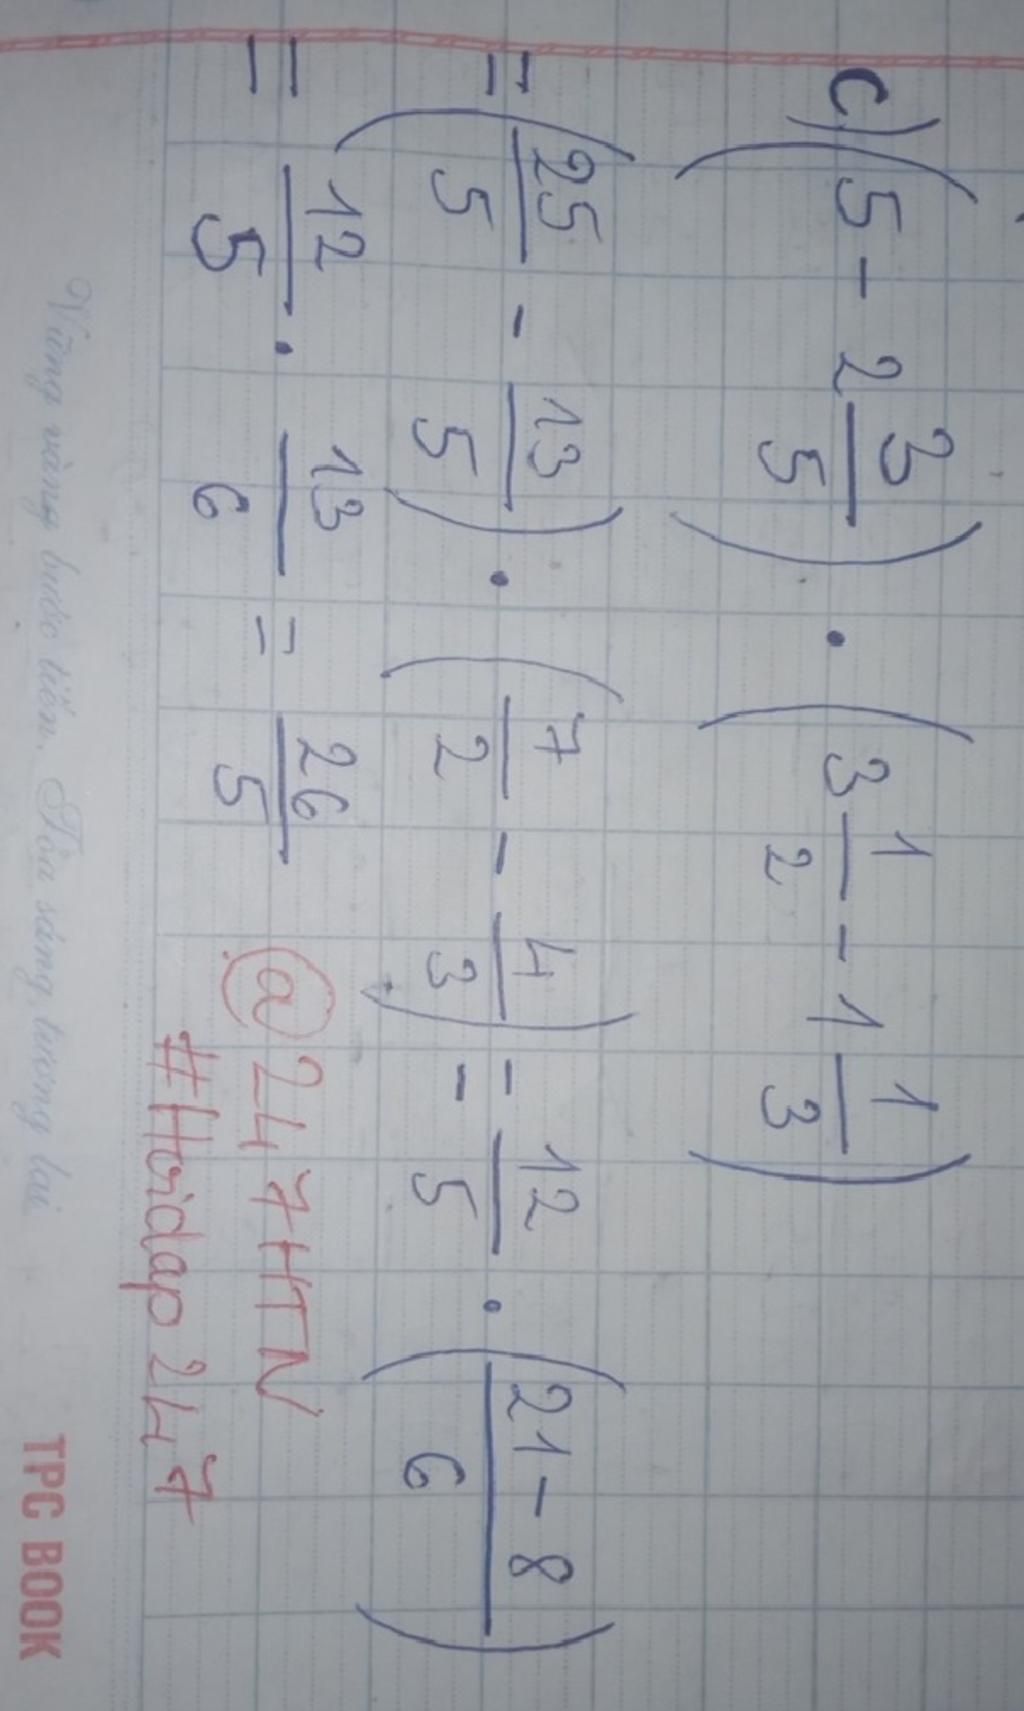 c) (5 - 2 3/5) . (3 1/2 - 1 1/3)
= (25/5 - 13/5) . (7/2 - 4/3) = 12/5 . (21 - 8/6)
= 12/5 . 13/6 = 26/5
@247HTN
#Hoidap247
Vững vàng bước tiến. Tỏa sáng tương lai
TPC BOOK